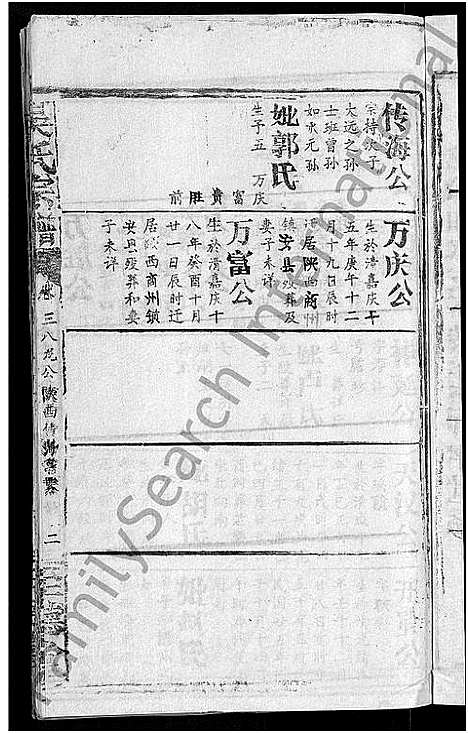 传海公
宗持次子
大远之孙
士班曾孙
如求元孙
妣郭氏
生子五 万庆
富 贵 胜 前
万庆公
生於清嘉庆十
五年庚午十二
月十九日辰时
迁居陕西商州
镇安县殁葬及
妻子未详
万富公
生於清嘉庆十
八年癸酉十月
廿一日辰时迁
居陕西商州镇
安县殁葬和妻
子未详
吴氏宗谱
卷三八元公陕西传海 二
FamilySearch International